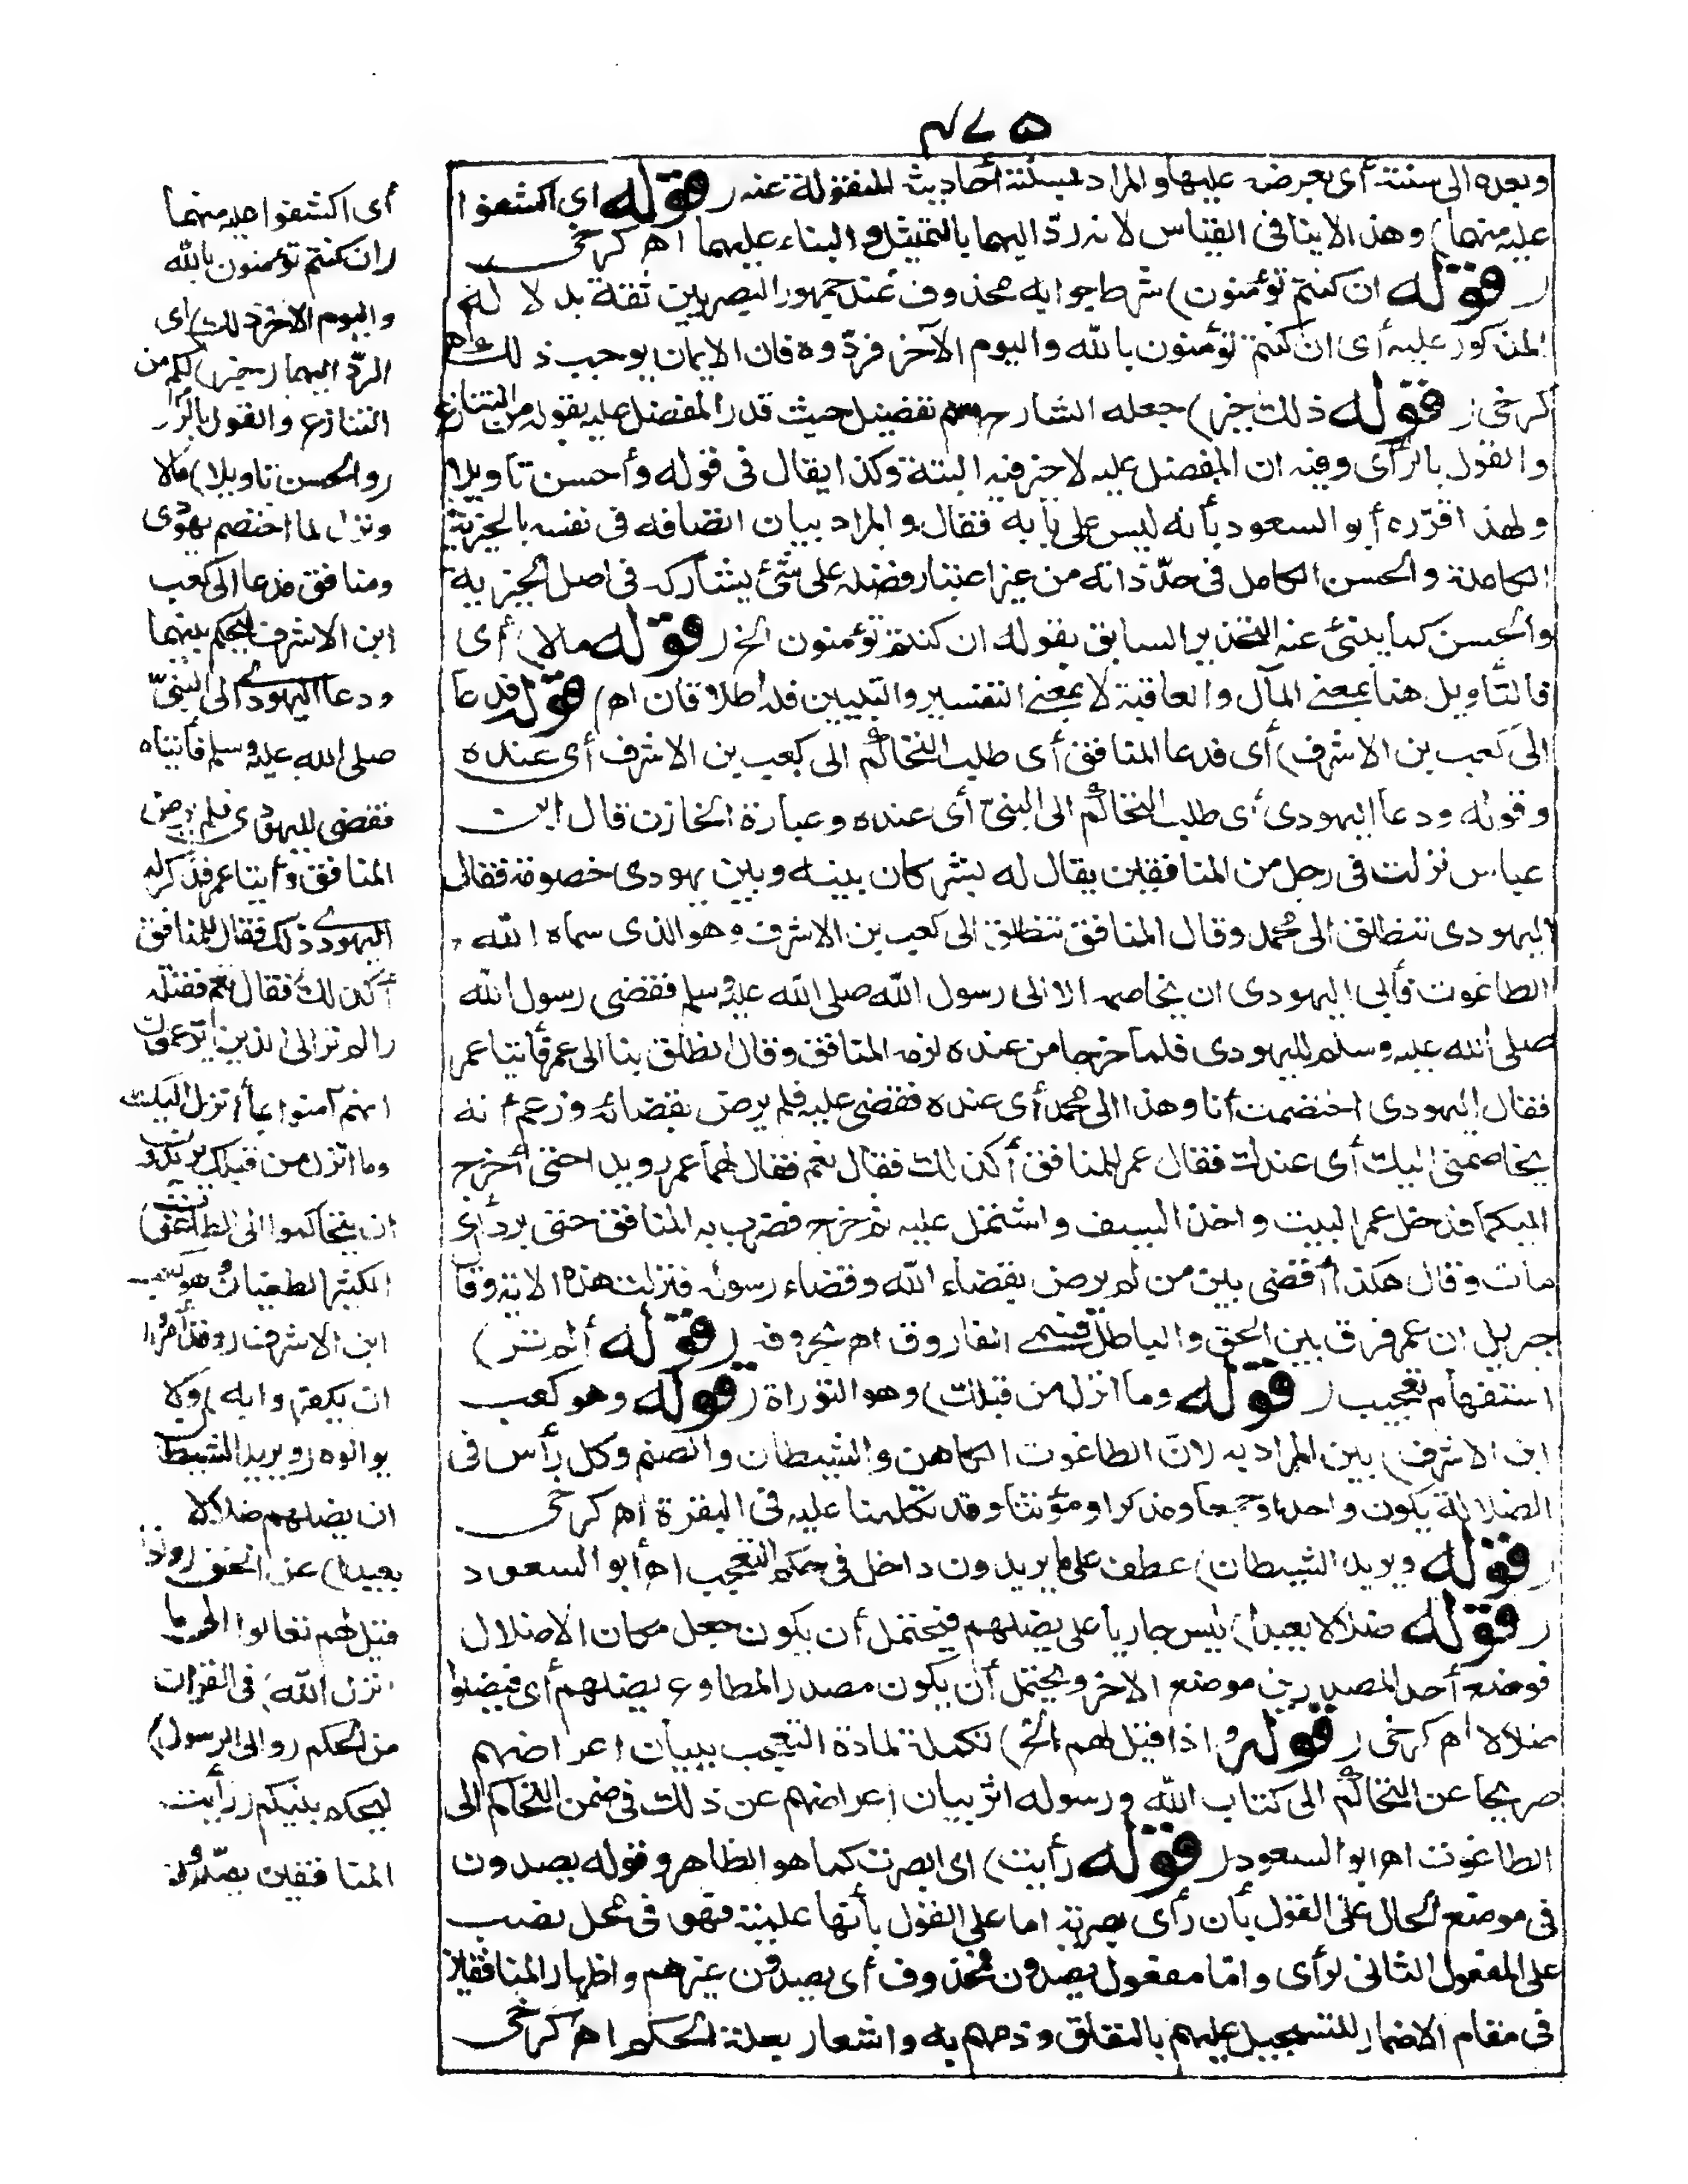 ٤٧٥
وبعده الى سنته أى بعرضه عليها والمراد بسنته أحاديثه المنقولة عنه (قوله اى اكشفوا
عليه منهما) وهذا لا ينافى القياس لانه ردّ اليهما بالتمثيل والبناء عليهما اهـ كرخى
(قوله ان كنتم تؤمنون) شرط جوابه محذوف عند جمهور البصريين ثقة بدلالة
المذكور عليه أى ان كنتم تؤمنون بالله واليوم الآخر فردّوه فان الايمان يوجب ذلك اهـ
كرخى (قوله ذلك خير) جعله الشارح اسم تفضيل حيث قدر المفضل عليه بقوله من التنازع
والقول بالرأى وفيه ان المفضل عليه لا خير فيه البتة وكذا يقال فى قوله وأحسن تأويلا
ولهذا قرّره أبو السعود بأنه ليس على بابه فقال والمراد بيان اتصافه فى نفسه بالخيرية
الكاملة والحسن الكامل فى حدّ ذاته من غير اعتبار فضله على شئ يشاركه فى اصل الخيرية
والحسن كما ينبئ عنه التحذير السابق بقوله ان كنتم تؤمنون الخ (قوله مآلا) أى
فالتأويل هنا بمعنى المآل والعاقبة لا بمعنى التفسير والتبيين فله اطلاقان اهـ (قوله فدعا
الى كعب بن الاشرف) أى فدعا المنافق أى طلب التحاكم الى كعب بن الاشرف أى عنده
وقوله ودعا اليهودى أى طلب التحاكم الى النبىّ أى عنده وعبارة الخازن قال ابن
عباس نزلت فى رجل من المنافقين يقال له بشر كان بينه وبين يهودى خصومة فقال
اليهودى ننطلق الى محمد وقال المنافق ننطلق الى كعب بن الاشرف وهو الذى سماه الله
الطاغوت فأبى اليهودى ان يخاصمه الا الى رسول الله صلى الله عليه وسلم فقضى رسول الله
صلى الله عليه وسلم لليهودى فلما خرجا من عنده لزمه المنافق وقال انطلق بنا الى عمر فأتيا عمر
فقال اليهودى اختصمت أنا وهذا الى محمد أى عنده فقضى عليه فلم يرض بقضائه وزعم أنه
يخاصمنى اليك أى عندك فقال عمر للمنافق أكذلك فقال نعم فقال لهما عمر رويدا حتى أخرج
اليكما فدخل عمر البيت واخذ السيف واشتمل عليه ثم خرج فضرب به المنافق حتى برد أى
مات وقال هكذا أقضى بين من لم يرض بقضاء الله وقضاء رسوله فنزلت هذه الاية وقال
جبريل ان عمر فرق بين الحق والباطل فسمى الفاروق اهـ بحروفه (قوله ألم تر)
استفهام تعجيب (قوله وما انزل من قبلك) وهو التوراة (قوله وهو كعب
ابن الاشرف) بين المراد به لان الطاغوت الكاهن والشيطان والصنم وكل رأس فى
الضلالة يكون واحدا وجمعا ومذكرا ومؤنثا وقد تكلمنا عليه فى البقرة اهـ كرخى
(قوله ويريد الشيطان) عطف على يريدون داخل فى حكم التعجيب اهـ أبو السعود
(قوله ضلالا بعيدا) ليس جاريا على يضلهم فيحتمل أن يكون جعل مكان الاضلال
فوضع أحد المصدرين موضع الاخر ويحتمل أن يكون مصدر المطاوع يضلهم أى فيضلوا
ضلالا اهـ كرخى (قوله واذا قيل لهم الخ) تكملة لمادة التعجيب ببيان اعراضهم
صريحا عن التحاكم الى كتاب الله ورسوله اثر بيان اعراضهم عن ذلك فى ضمن التحاكم الى
الطاغوت اهـ ابو السعود (قوله رأيت) اى ابصرت كما هو الظاهر وقوله يصدون
فى موضع الحال على القول بأن رأى بصرية اما على القول بأنها علمية فهو فى محل نصب
على المفعول الثانى لرأى واما مفعول يصدون محذوف أى يصدون غيرهم واظهار المنافقين
فى مقام الاضمار للتسجيل عليهم بالنفاق وذمهم به واشعار بعلة الحكم اهـ كرخى
أى اكشفوا عليه منهما
(ان كنتم تؤمنون بالله
واليوم الاخر ذلك) اى
الردّ اليهما (خير) لكم من
التنازع والقول بالرأى
(وأحسن تأويلا) مآلا
ونزل لما اختصم يهودى
ومنافق فدعا الى كعب
ابن الاشرف ليحكم بينهما
ودعا اليهودى الى النبىّ
صلى الله عليه وسلم فأتياه
فقضى لليهودى فلم يرض
المنافق وأتيا عمر فذكر له
اليهودى ذلك فقال للمنافق
أكذلك فقال نعم فقتله
(ألم تر الى الذين يزعمون
انهم آمنوا بما أنزل اليك
وما انزل من قبلك يريدون
ان يتحاكموا الى الطاغوت)
الكثير الطغيان وهو كعب
ابن الاشرف (وقد أمروا
ان يكفروا به) ولا
يوالوه (ويريد الشيطان
ان يضلهم ضلالا
بعيدا) عن الحق (واذا
قيل لهم تعالوا الى ما
انزل الله) فى القرآن
من الحكم (والى الرسول)
ليحكم بينكم (رأيت
المنافقين يصدون